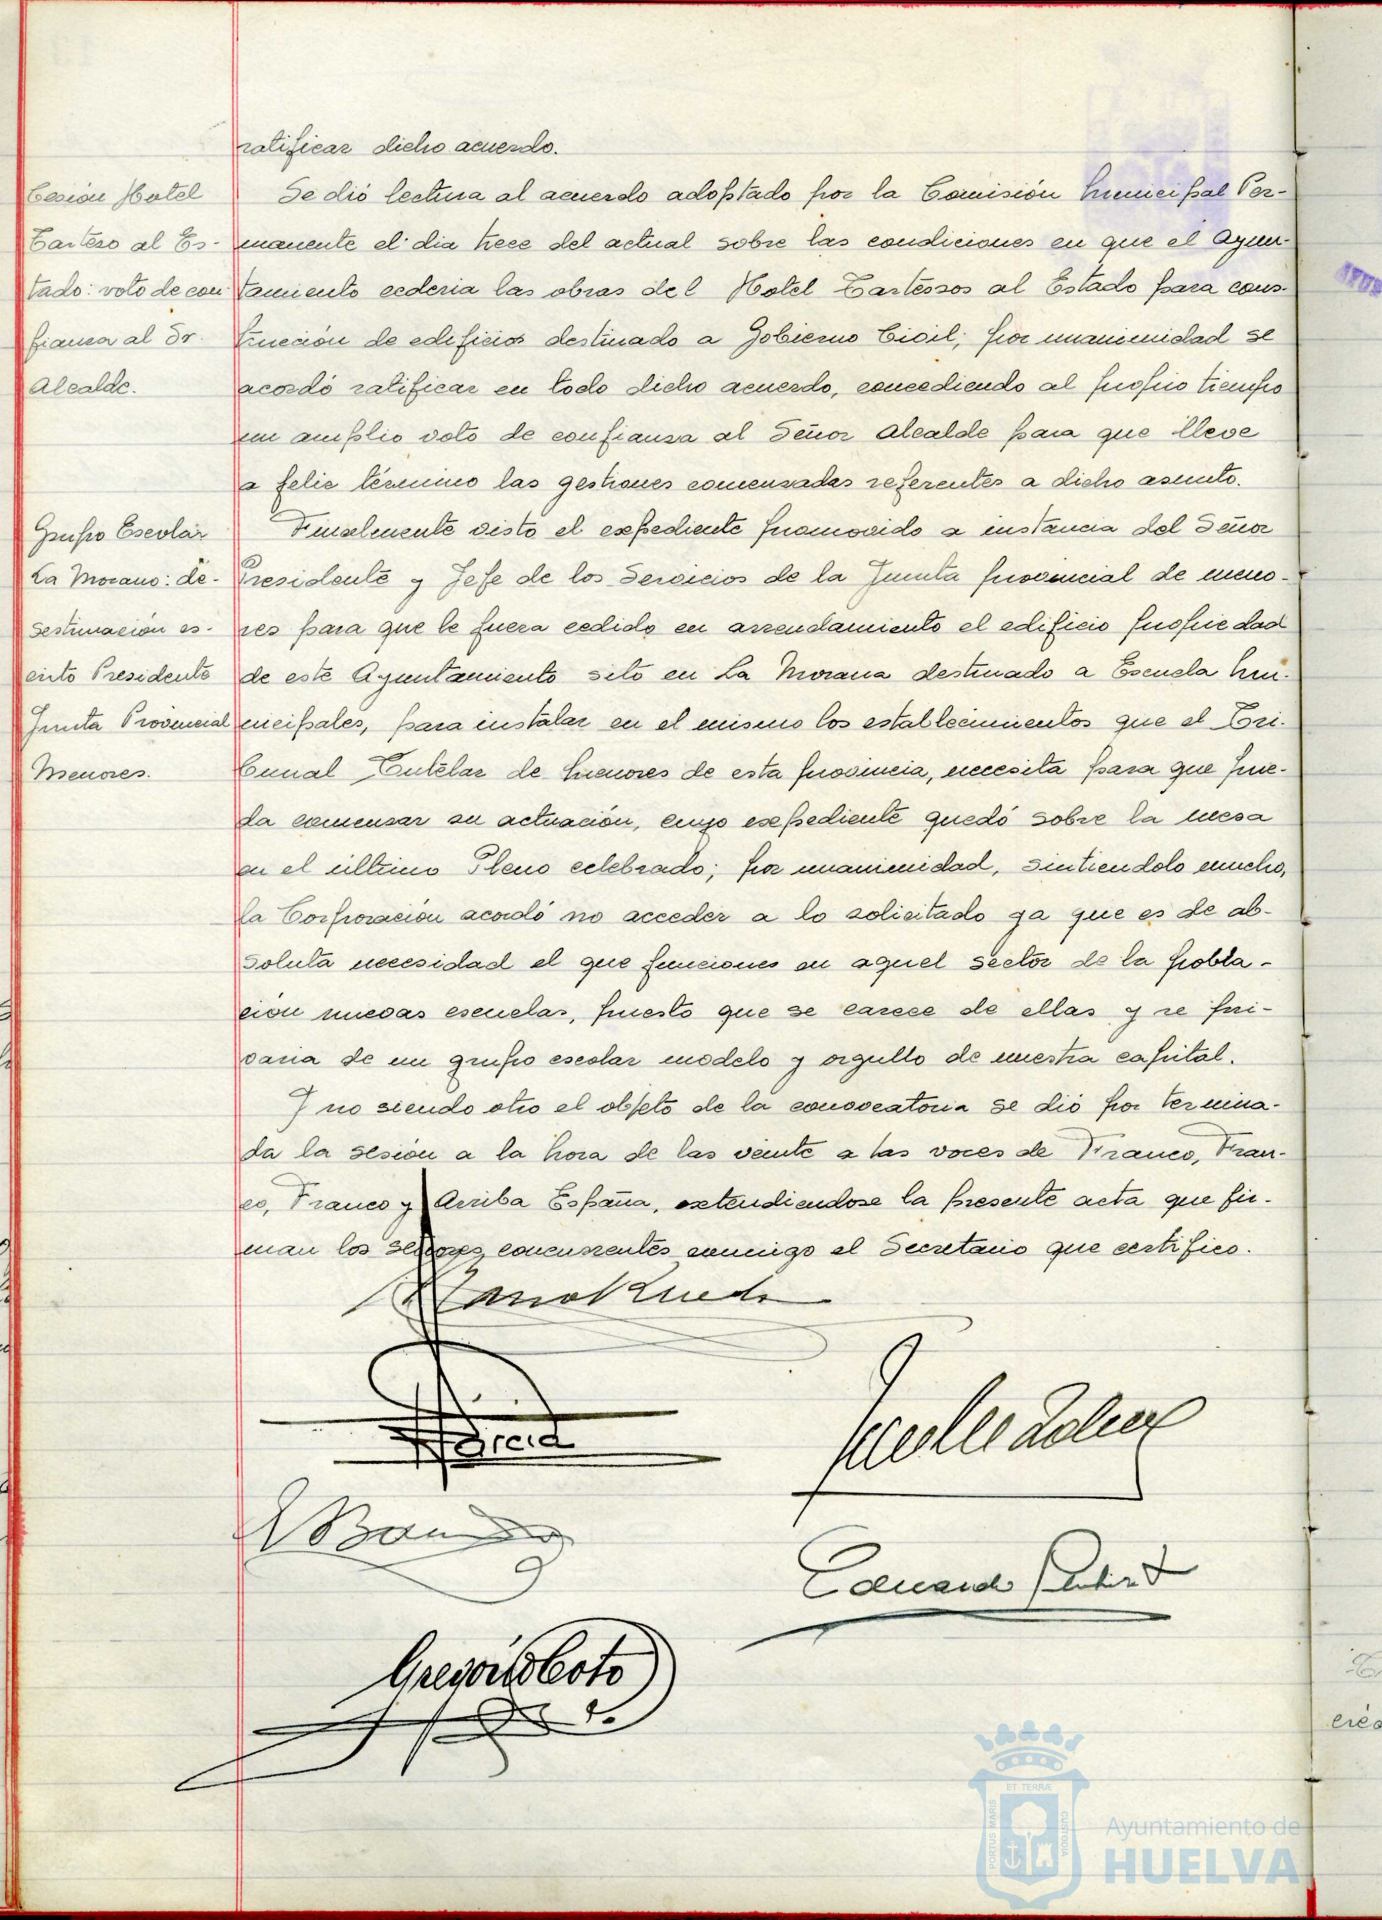 ratificar dicho acuerdo.
Cesión Hotel
Tarteso al Es-
tado: voto de con-
fianza al Sr.
Alcalde.
Se dió lectura al acuerdo adoptado por la Comisión Municipal Per-
manente el dia trece del actual sobre las condiciones en que el Ayun-
tamiento cederia las obras del Hotel Tartessos al Estado para cons-
trucción de edificios destinado a Gobierno Civil; por unanimidad se
acordó ratificar en todo dicho acuerdo, concediendo al propio tiempo
un amplio voto de confianza al Señor Alcalde para que lleve
a feliz término las gestiones comenzadas referentes a dicho asunto.
Grupo Escolar
La Morana: de-
sestimación es-
crito Presidente
Junta Provincial
Menores.
Finalmente visto el expediente promovido a instancia del Señor
Presidente y Jefe de los Servicios de la Junta provincial de meno-
res para que le fuera cedido en arrendamiento el edificio propiedad
de este Ayuntamiento sito en La Morana destinado a Escuela Mu-
nicipales, para instalar en el mismo los establecimientos que el Tri-
bunal Tutelar de Menores de esta provincia, necesita para que pue-
da comenzar su actuación, cuyo expediente quedó sobre la mesa
en el último Pleno celebrado; por unanimidad, sintiendolo mucho,
la Corporación acordó no acceder a lo solicitado ya que es de ab-
soluta necesidad el que funciones en aquel sector de la pobla-
ción nuevas escuelas, puesto que se carece de ellas y se pri-
varia de un grupo escolar modelo y orgullo de nuestra capital.
Y no siendo otro el objeto de la convocatoria se dió por termina-
da la sesión a la hora de las veinte a las voces de Franco, Fran-
co, Franco y Arriba España, extendiendose la presente acta que fir-
man los señores concurrentes conmigo el Secretario que certifico.
García
Eduardo
Gregorio Coto
ET TERRÆ
PORTUS MARIS
CUSTODIA
Ayuntamiento de
HUELVA